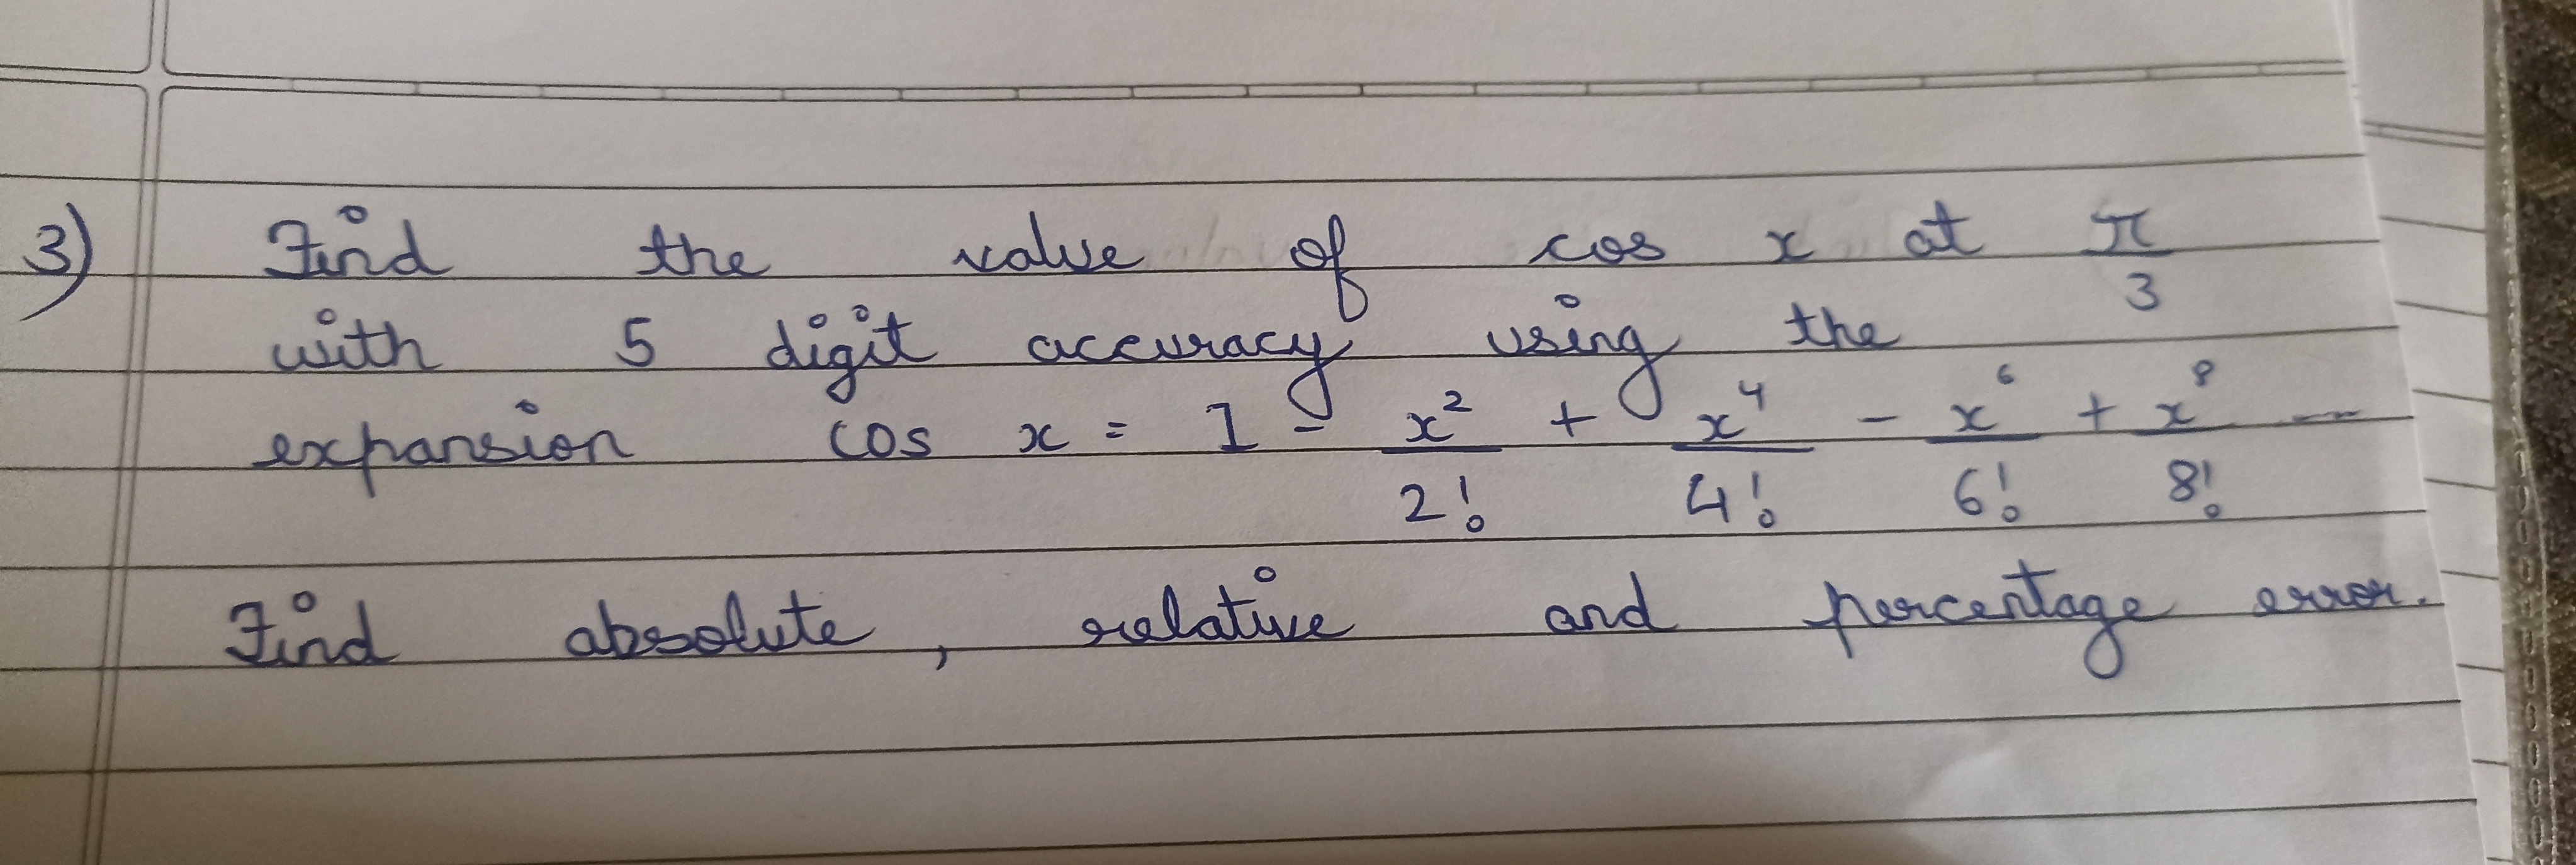 3) Find the value of cos x at π/3
with 5 digit accuracy using the
expansion cos x = 1 - x²/2! + x⁴/4! - x⁶/6! + x⁸/8! —
Find absolute, relative and percentage error.